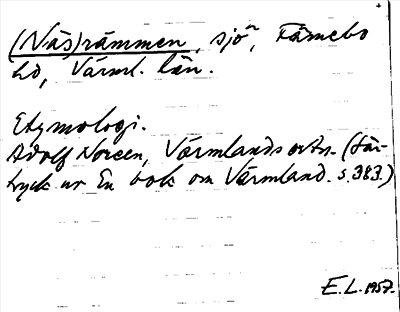 (Näs)rämmen, sjön, Färnebo
hd, Värml. län.
Etymologi.
Adolf Noreen, Värmlands ortn. (Sär-
tryck ur En bok om Värmland. s. 383.)
E.L. 1957.